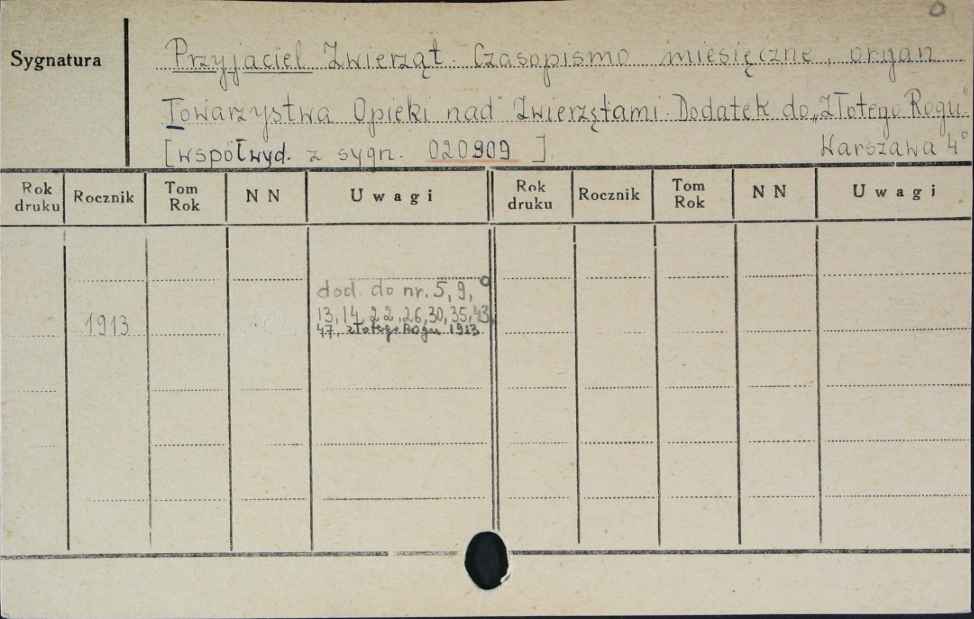 Sygnatura
Przyjaciel Zwierząt. Czasopismo miesięczne, organ
Towarzystwa Opieki nad Zwierzętami. Dodatek do „Złotego Rogu".
[współwyd. z sygn. 020909 ]. Warszawa 4°
Rok druku Rocznik Tom Rok N N Uwagi Rok druku Rocznik Tom Rok N N Uwagi
dod. do nr. 5, 9,
1913 13, 14, 22, 26, 30, 35, 43,
47, złotego Rogu 1913.